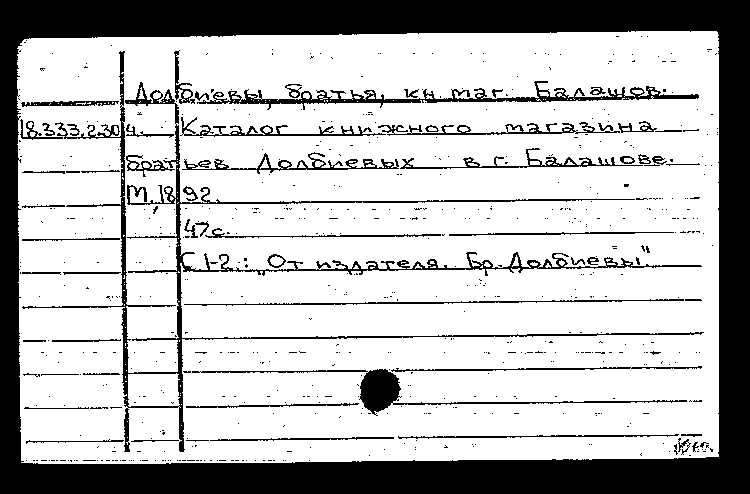 Долбиевы, братья, кн. маг. Балашов.
18.333.2.304. Каталог книжного магазина
братьев Долбиевых в г. Балашове.
М, 1892.
47с.
С 1-2.: „От издателя. Бр. Долбиевы"